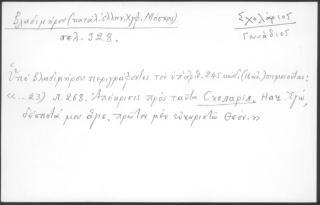 Βλαδιμήρου (κατάλ. ἑλλην. χγφ. Μόσχας)
σελ. 328.
Σχολάριος
Γεννάδιος
Ὑπὸ Βλαδιμήρου περιγράφοντος τὸν ὑπ' ἀρθ. 245 κώδ. (Βατ.) σημειοῦται:
«... 23) Λ. 268. Ἀπόκρισις πρὸς ταῦτα Σχολαρίου. Нач. Ἐγώ,
δέσποτά μου ἅγιε, πρῶτον μὲν εὐχαριστῶ Θεόν.»